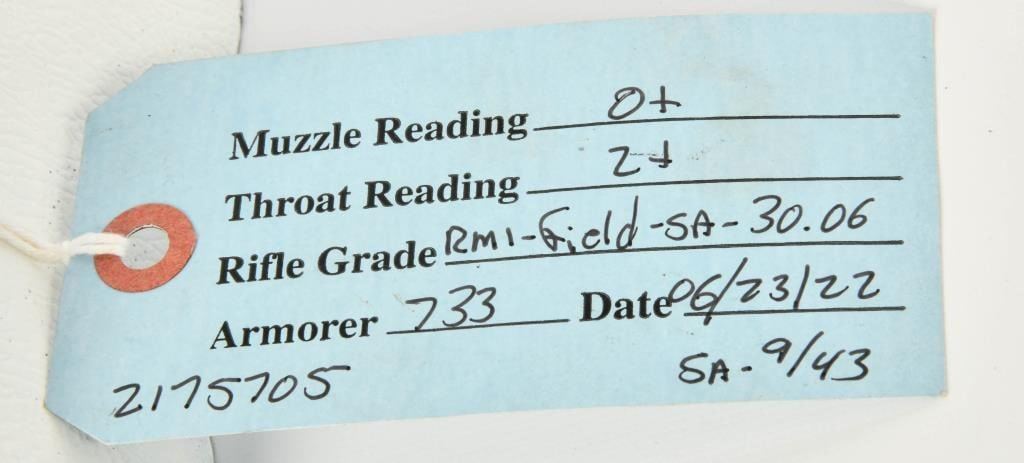 Muzzle Reading 0+
Throat Reading 2+
Rifle Grade RM1-Field-SA-30.06
Armorer 733 Date 06/23/22
2175705 SA-9/43